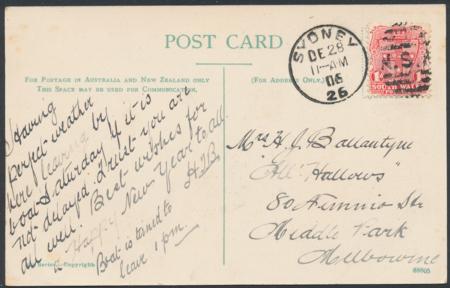 POST CARD
FOR POSTAGE IN AUSTRALIA AND NEW ZEALAND ONLY
THIS SPACE MAY BE USED FOR COMMUNICATION.
(FOR ADDRESS
SYDNEY
DE 28
11-AM
06
26
SOUTH WALES
Having
perfect weather
here leaving by
boat Saturday if it is
not delayed. Trust you are
all well. Best wishes for
a Happy New Year to all.
HJB
Boat is timed to
leave 1 pm.
Mrs H. J. Ballantyne
"All Hallows"
80 Nimmo St
Middle Park
Melbourne
Series.—Copyright.